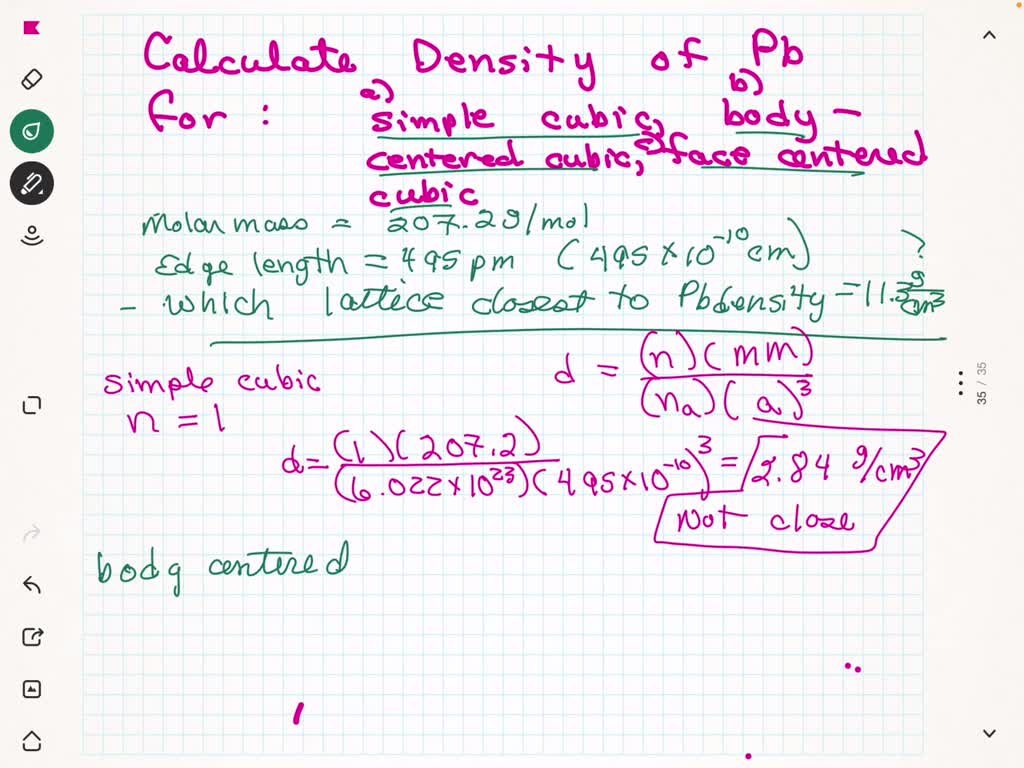 Calculate Density of Pb
for : a) simple cubic, b) body-
centered cubic, c) face centered
cubic
Molar mass = 207.2g/mol
Edge length = 495 pm (495 × 10⁻¹⁰ cm)
- which lattice closest to Pb density = 11.3 g/cm³ ?
simple cubic
n = 1
d = (n)(mm) / (na)(a)³
d = (1)(207.2) / (6.022×10²³)(495×10⁻¹⁰)³ = 2.84 g/cm³
Not close
body centered
35 / 35